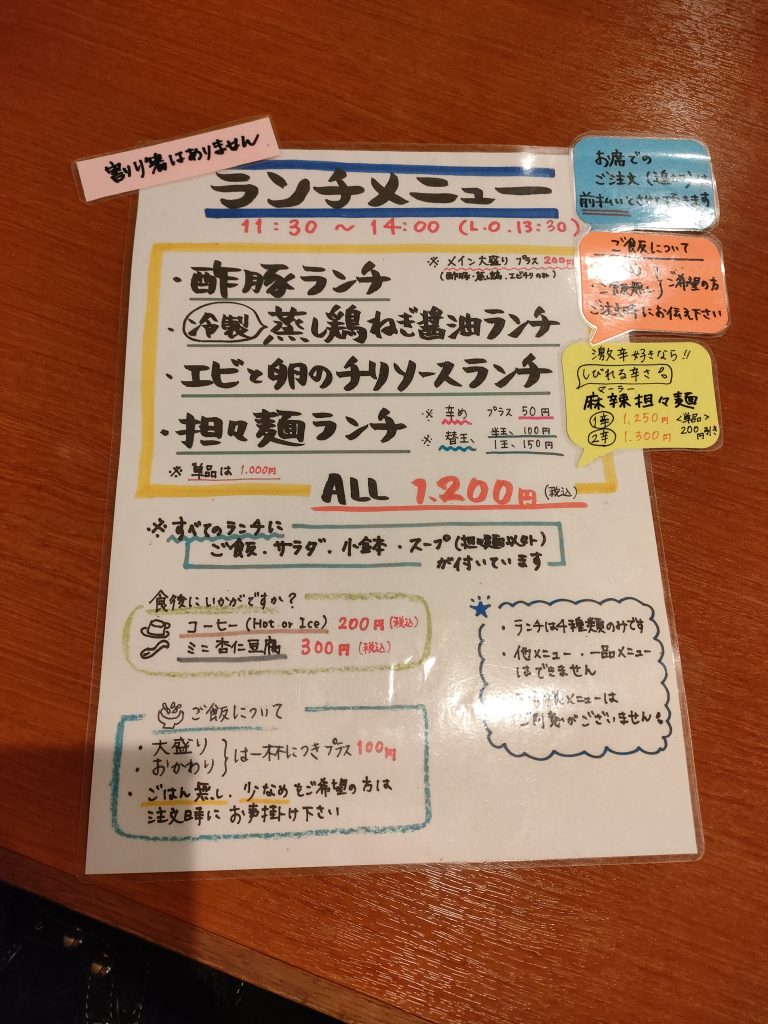 割り箸はありません
ランチメニュー
11:30 ～ 14:00 (L.O.13:30)
お席での
ご注文
前払いとさせて頂きます
ご飯について
・ご飯無し ご希望の方
ご注文時にお伝え下さい
※ メイン大盛り プラス 200円
(酢豚・蒸し鶏・エビチリのみ)
・酢豚ランチ
・冷製 蒸し鶏ねぎ醤油ランチ
・エビと卵のチリソースランチ
・担々麺ランチ
※ 辛め プラス 50円
※ 替玉、半玉、100円
1玉、150円
※ 単品は 1.000円
ALL 1.200円(税込)
激辛好きなら!!
しびれる辛さ。
マーラー
麻辣担々麺
1辛 1,250円 <単品>
2辛 1.300円 200円引き
※すべてのランチに
ご飯・サラダ・小鉢・スープ(担々麺以外)
が付いています
食後にいかがですか?
コーヒー (Hot or Ice) 200円(税込)
ミニ杏仁豆腐 300円(税込)
・ランチは4種類のみです
・他メニュー・一品メニュー
はできません
メニューは
ございません。
ご飯について
・大盛り
・おかわり
は一杯につきプラス100円
・ごはん無し、少なめをご希望の方は
注文時にお声掛け下さい